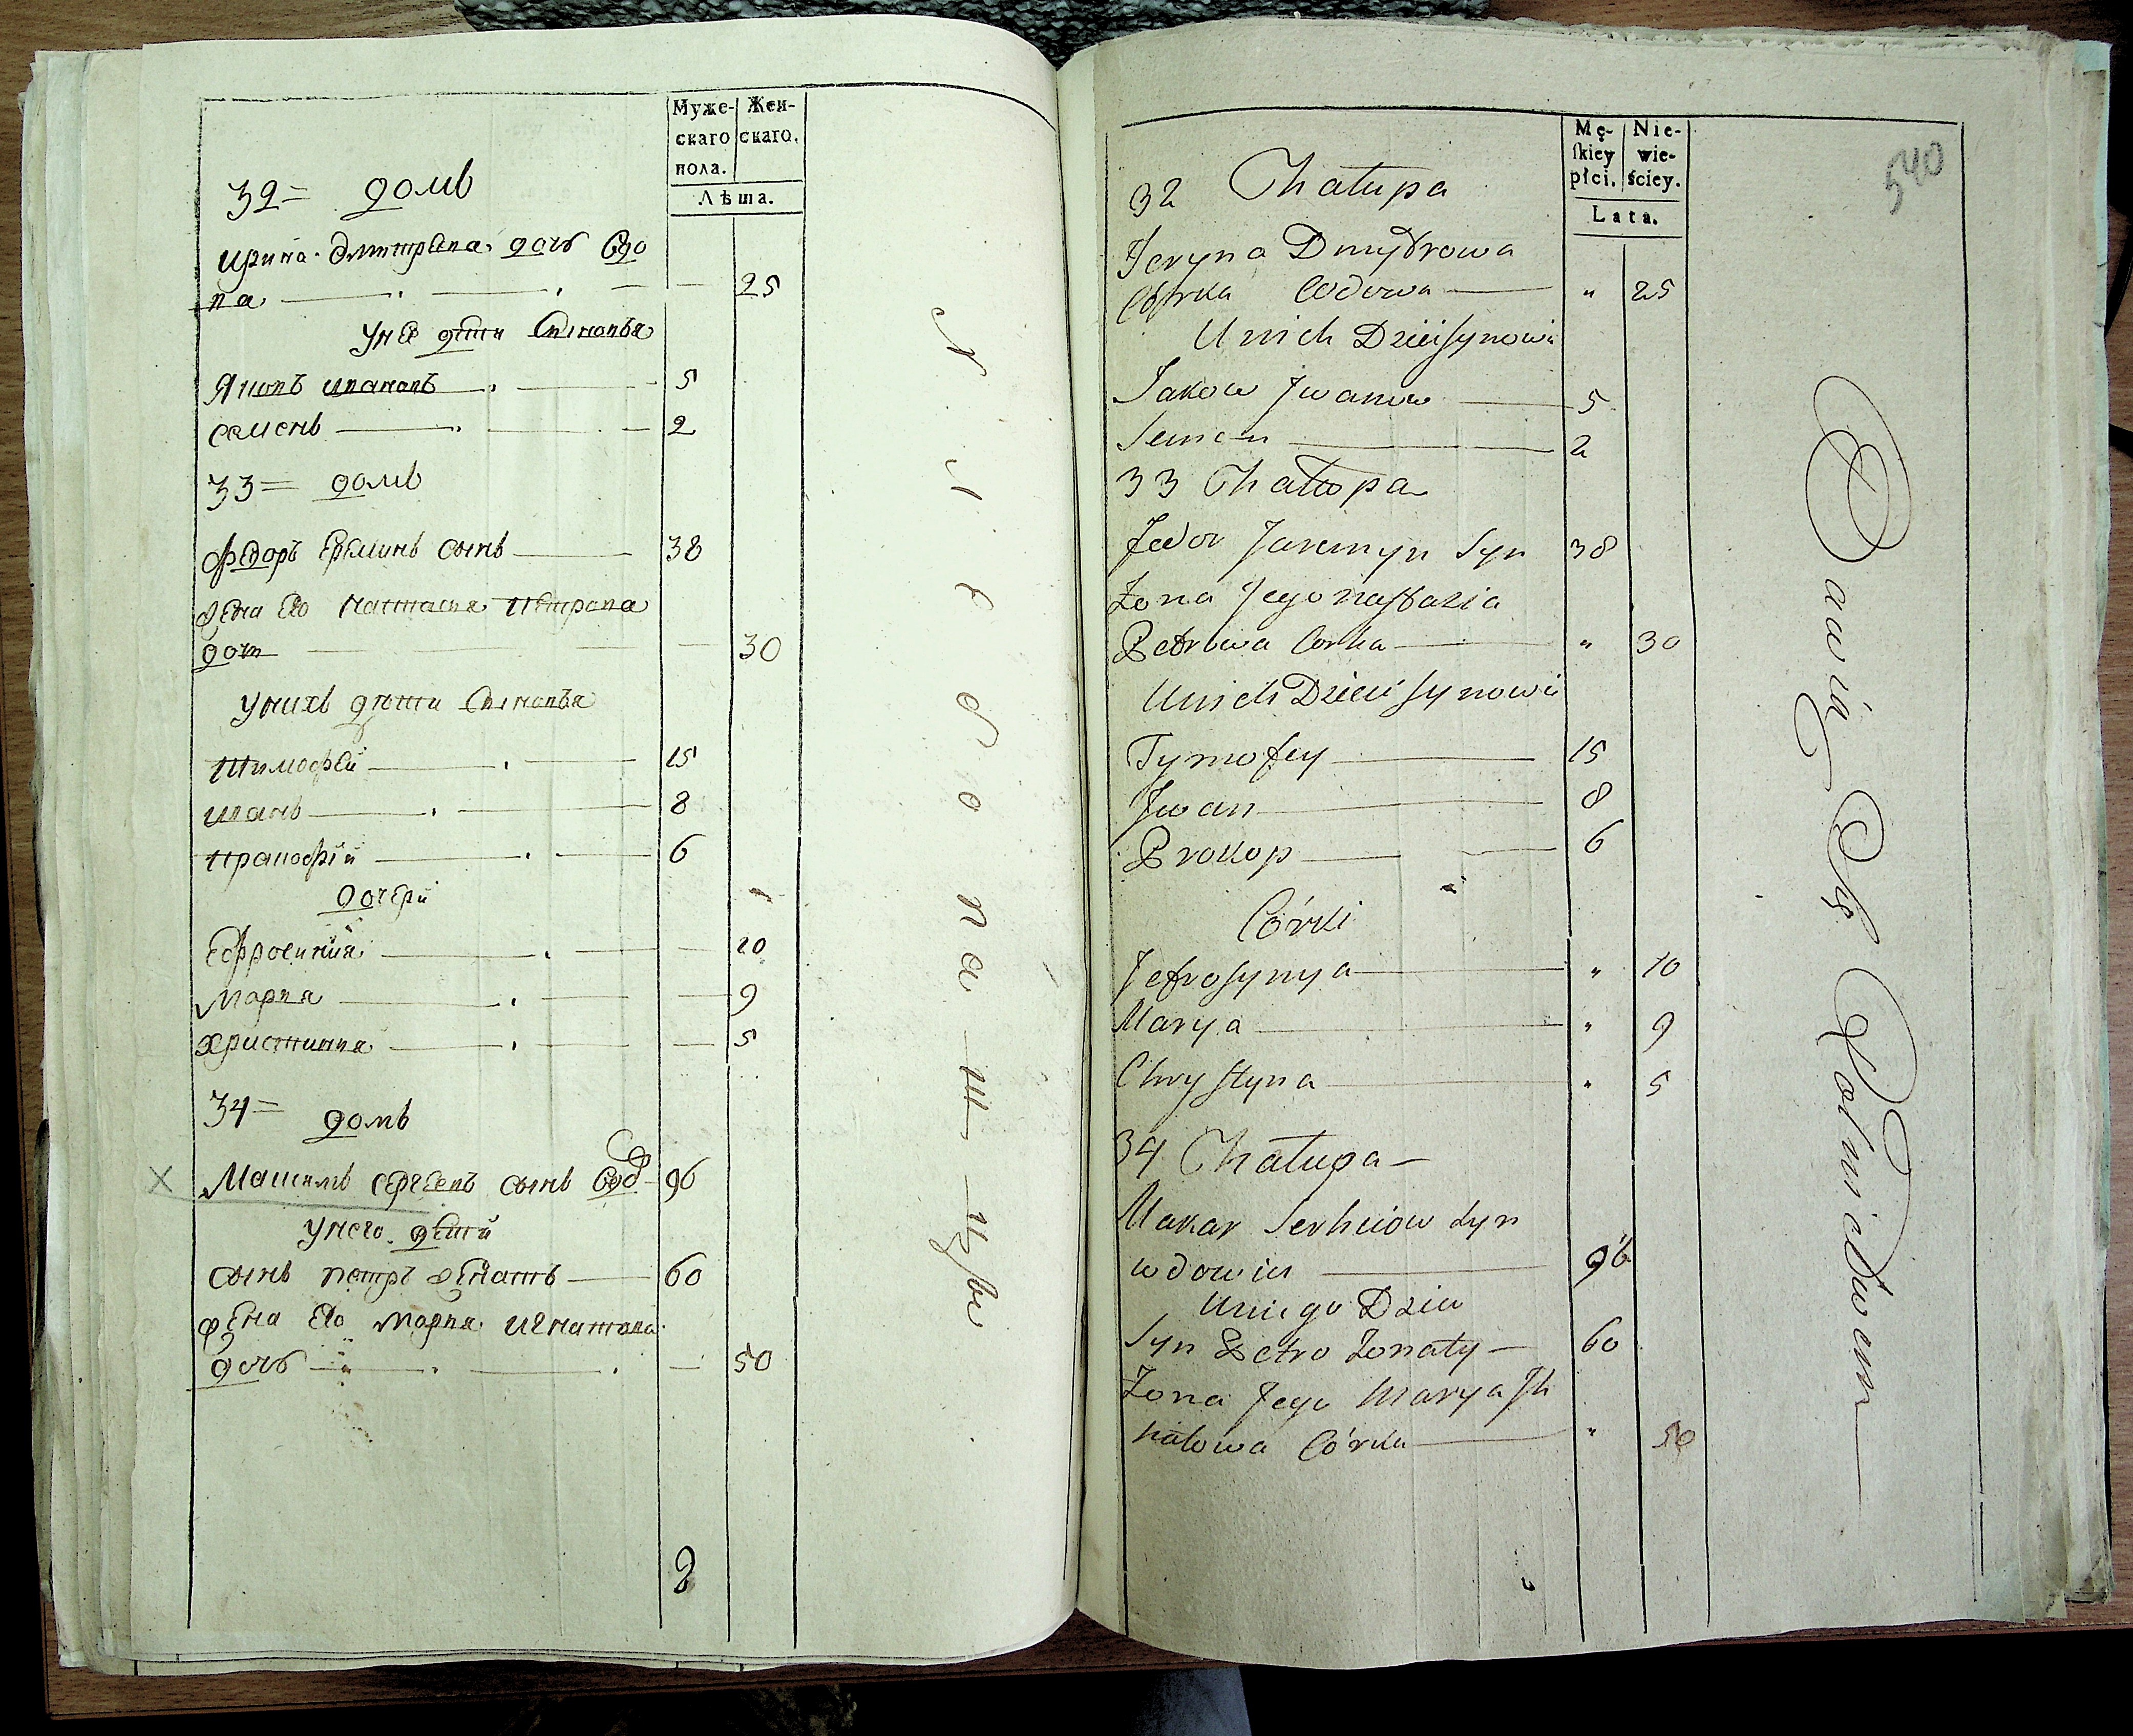 Муже-
скаго
пола.
Жен-
скаго.
Лѣта.
32= домъ
Ирина Дмитрева дочь Вдо
ва 25
У нее дѣти Сыновья
Яковъ Ивановъ 5
Семенъ 2
33= домъ
Федоръ Ереминъ сынъ 38
Жена Его Настасия Петрова
дочь 30
У нихъ дѣти Сыновья
Тимофей 15
Иванъ 8
Прокофий 6
Дочери
Ефросиния 10
Мария 9
Христина 5
34= домъ
Сергеевъ сынъ Вдо 96
У него дети
Сынъ Петръ Женатъ 60
Жена Его Мария Игнатова
дочь 50
Хлебопашцы
540
Mę-
skiey
płci.
Nie-
wie-
ściey.
Lata.
32 Chałupa
Jeryna Dmytrowa
Córka Wdowa " 25
U nich Dzieci synowie
Jakow Jwanow 5
Semen 2
33 Chałupa
Fedor Jaremyn Syn 38
Żona Jego Nastazia
Petrowa Corka " 30
U nich Dzieci synowie
Tymofey 15
Jwan 8
Prokop 6
Córki
Jefrosynya " 10
Marya " 9
Chrystyna " 5
34 Chałupa
Makar Serhiiow Syn
wdowiec 96
U niego Dzieci
Syn Petro Żonaty 60
Żona Jego Marya Jh
natowa Córka " 50
Bawią Się Rolnictwem